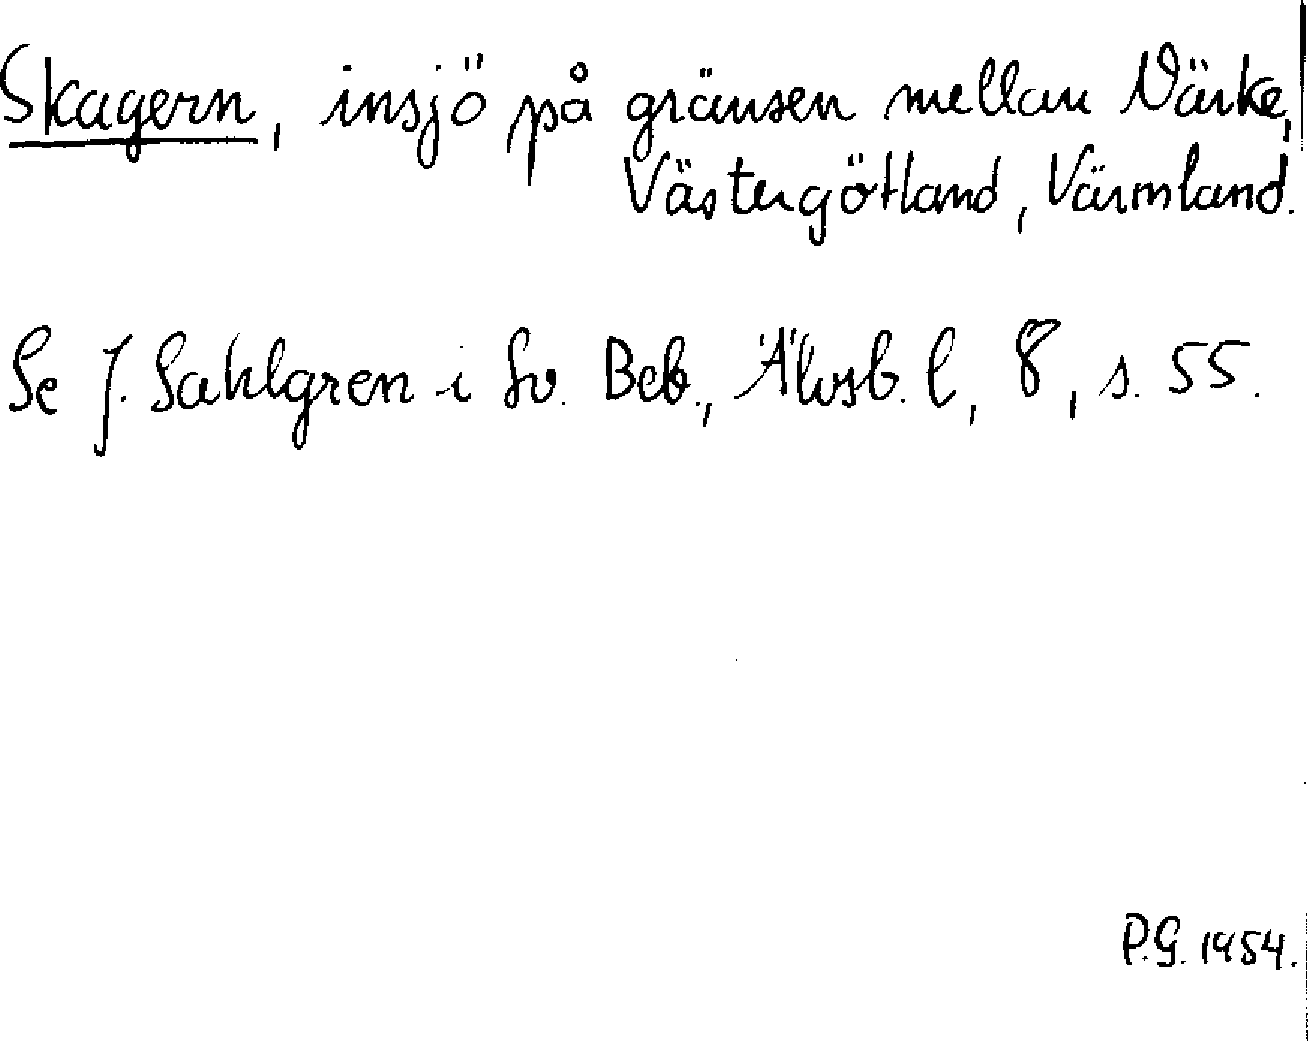 Skagern, insjö på gränsen mellan Närke,
Västergötland, Värmland.
Se J. Sahlgren i Sv. Beb., Älvsb. l, 8, s. 55.
P.G. 1954.